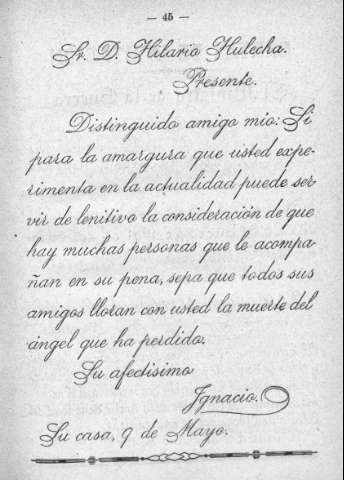 — 45 —
Sr. D. Hilario Hulecha.
Presente.
Distinguido amigo mio: Si
para la amargura que usted expe-
rimenta en la actualidad puede ser-
vir de lenitivo la consideración de que
hay muchas personas que le acompa-
ñan en su pena, sepa que todos sus
amigos lloran con usted la muerte del
ángel que ha perdido.
Su afectisimo
Ignacio.
Su casa, 9 de Mayo.